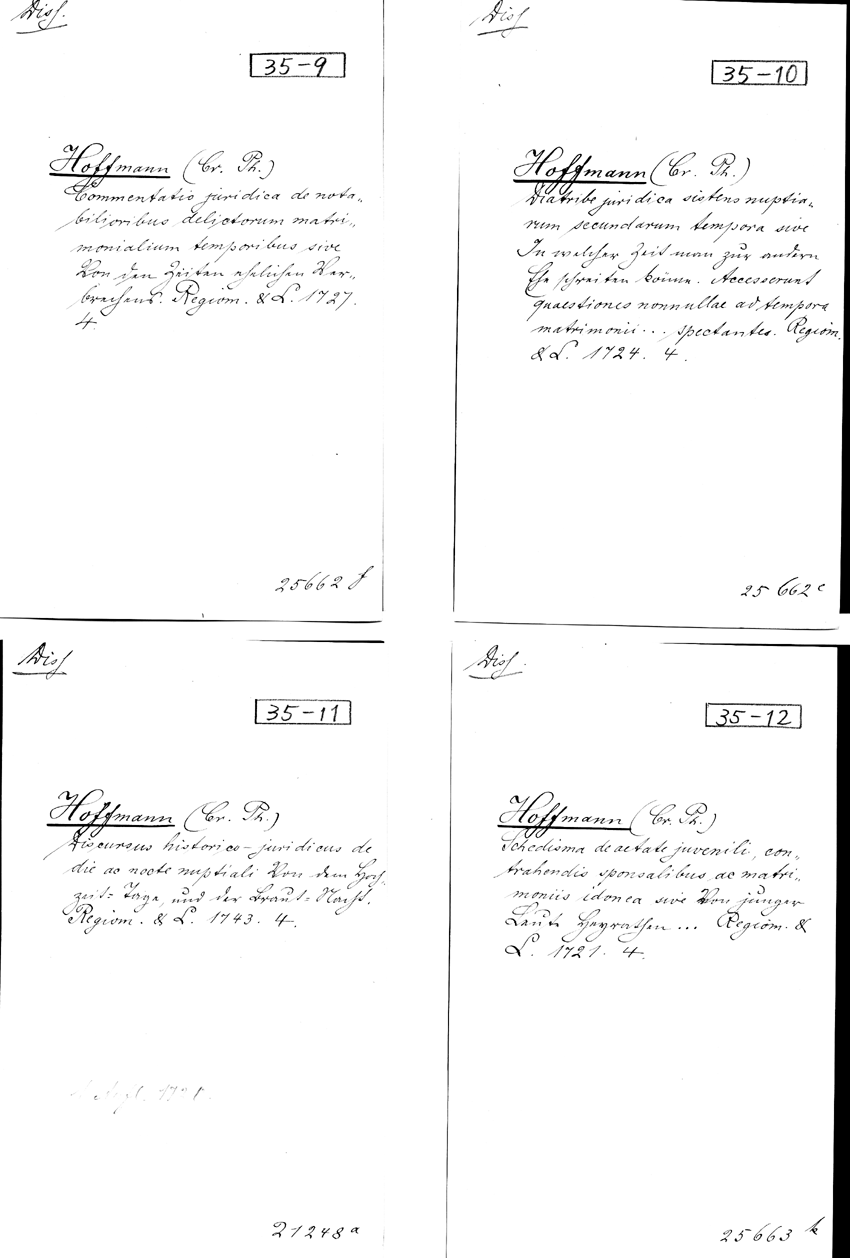 Diss.
35-9
Hoffmann (Cr. Ph.)
Commentatio juridica de nota-
bilioribus delictorum matri-
monialium temporibus sive
Von den Zeiten ehelichen Ver-
brechens. Regiom. & L. 1727.
4.
25662 f
Diss
35-10
Hoffmann (Cr. Ph.)
Diatribe juridica sistens nuptia-
rum secundarum tempora sive
In welcher Zeit man zur andern
Ehe schreiten könne. Accesserunt
quaestiones nonnullae ad tempora
matrimonii... spectantes. Regiom.
& L. 1724. 4.
25 662 c
Diss
35-11
Hoffmann (Cr. Ph.)
Discursus historico-juridicus de
die ac nocte nuptiali Von dem Hoch-
zeit-Tage, und der Braut-Nacht.
Regiom. & L. 1743. 4.
21248 a
Diss.
35-12
Hoffmann (Cr. Ph.)
Schedisma de aetate juvenili, con-
trahendis sponsalibus, ac matri-
moniis idonea sive Von junger
Leute Heyrathen ... Regiom. &
L. 1721. 4.
25663 k